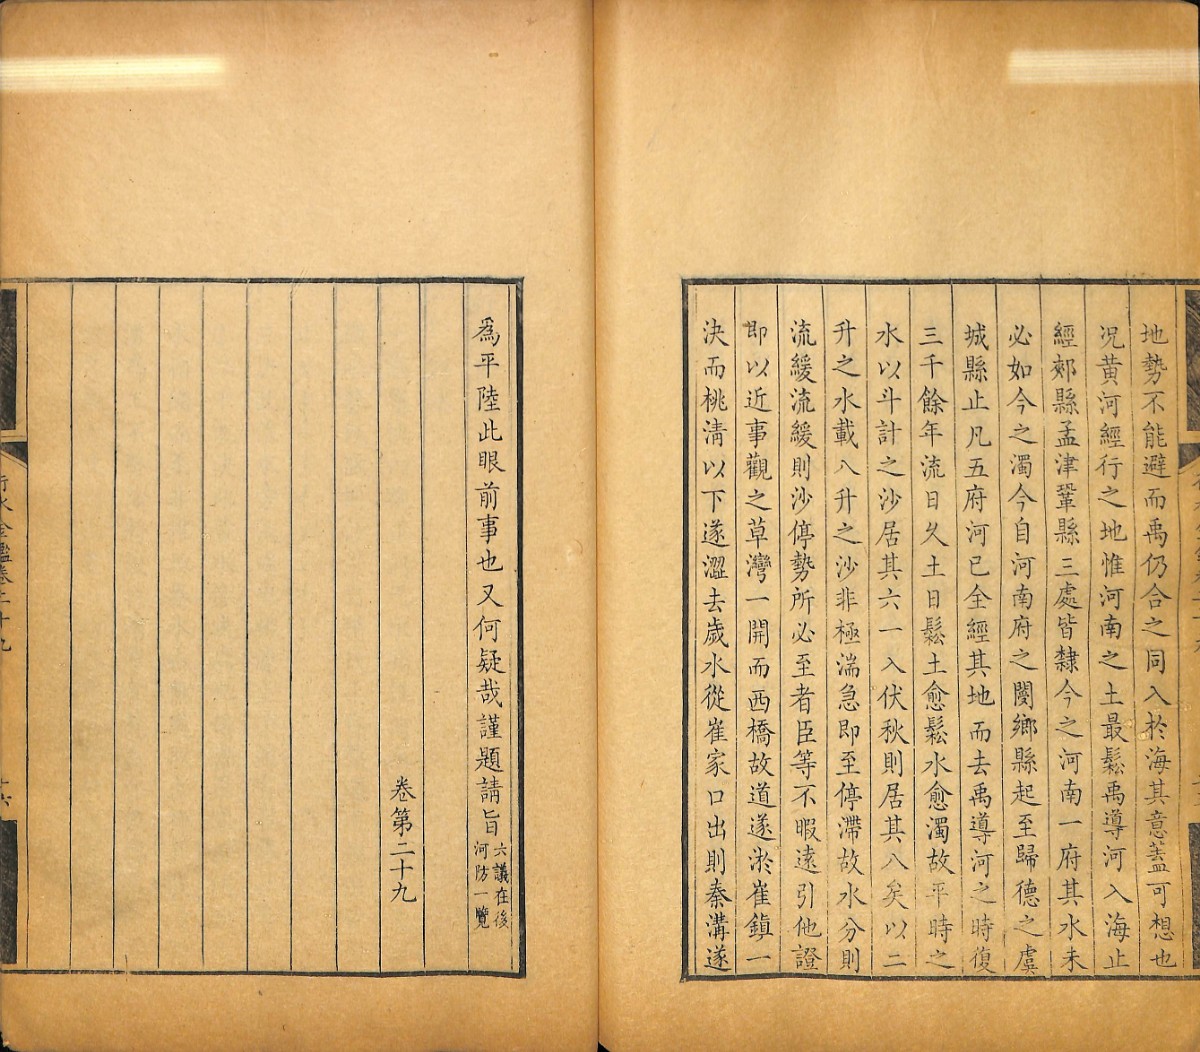 地勢不能避而禹仍合之同入於海其意蓋可想也
况黄河經行之地惟河南之土最鬆禹導河入海止
經郟縣孟津鞏縣三處皆隸今之河南一府其水未
必如今之濁今自河南府之閿鄉縣起至歸德之虞
城縣止凡五府河已全經其地而去禹導河之時復
三千餘年流日久土日鬆土愈鬆水愈濁故平時之
水以斗計之沙居其六一入伏秋則居其八矣以二
升之水載八升之沙非極湍急即至停滯故水分則
流緩流緩則沙停勢所必至者臣等不暇遠引他證
即以近事觀之草灣一開而西橋故道遂淤崔鎮一
決而桃清以下遂澀去歲水從崔家口出則秦溝遂
爲平陸此眼前事也又何疑哉謹題請旨六議在後河防一覽
卷第二十九
行水金鑑卷二十九
十六